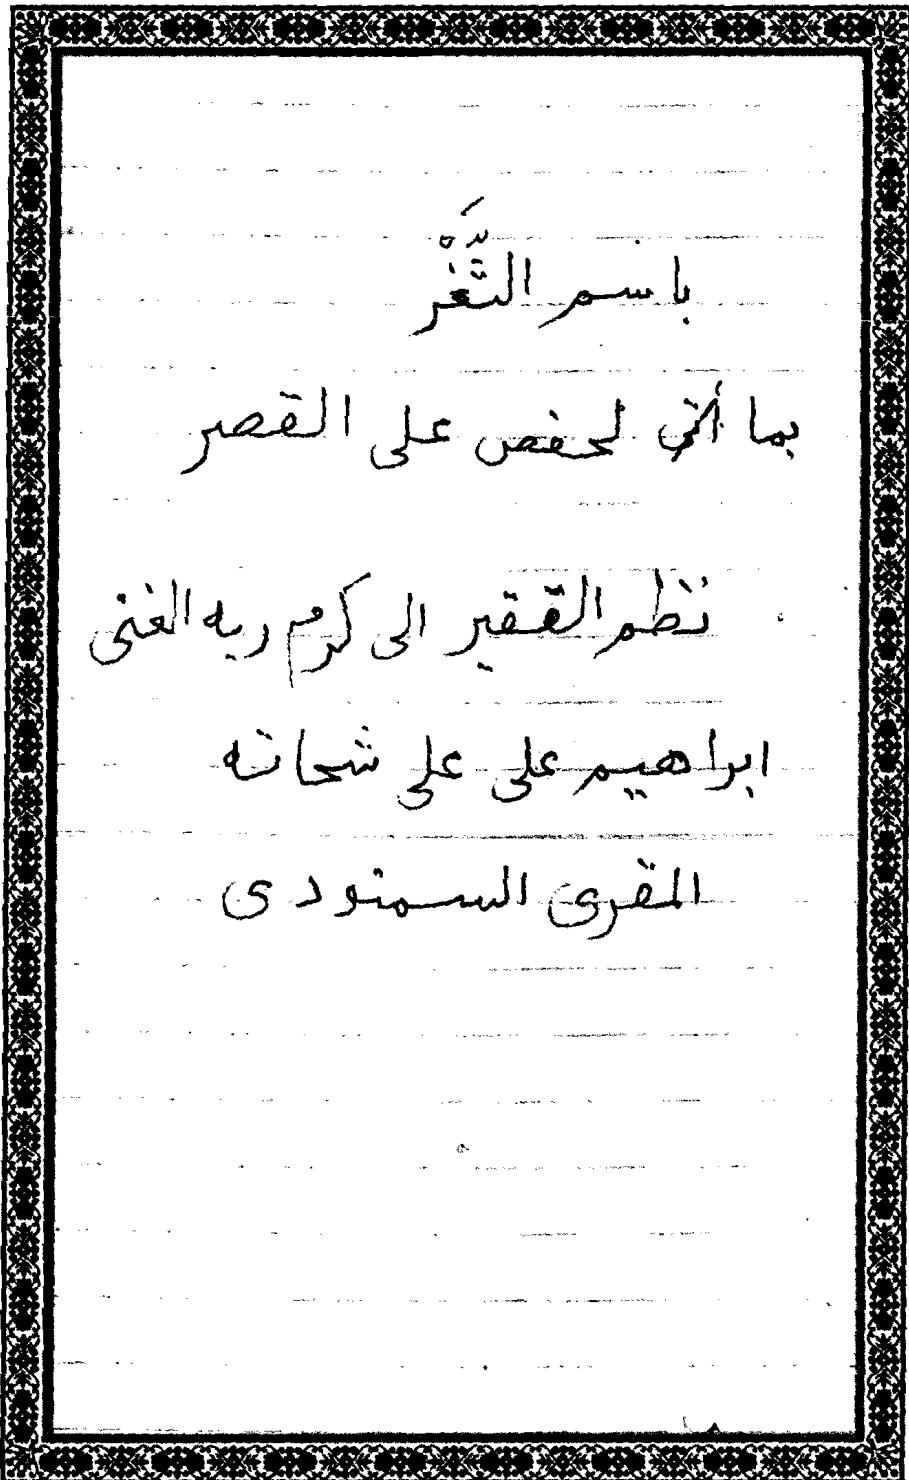 باسم الثَّغْر
بما أتى لحفص على القصر
نظم الفقير الى كرم ربه الغنى
ابراهيم على على شحاته
المقرى السمنودى